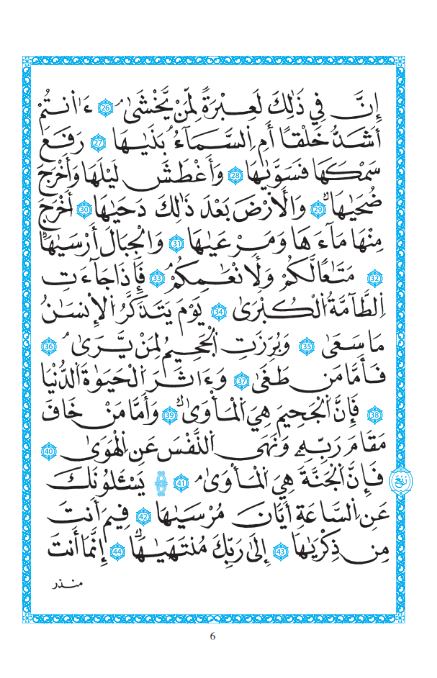 إِنَّ فِي ذَٰلِكَ لَعِبْرَةً لِّمَنْ يَّخْشَىٰ ﴿26﴾ ءَاَنْتُمْ
أَشَدُّ خَلْقًا أَمِ السَّمَآءُ بَنَىٰهَا ﴿27﴾ رَفَعَ
سَمْكَهَا فَسَوَّىٰهَا ﴿28﴾ وَأَغْطَشَ لَيْلَهَا وَأَخْرَجَ
ضُحَىٰهَا ﴿29﴾ وَالْأَرْضَ بَعْدَ ذَٰلِكَ دَحَىٰهَا ﴿30﴾ أَخْرَجَ
مِنْهَا مَآءَهَا وَمَرْعَىٰهَا ﴿31﴾ وَالْجِبَالَ أَرْسَىٰهَا
﴿32﴾ مَتَاعًا لَّكُمْ وَلِأَنْعَٰمِكُمْ ﴿33﴾ فَإِذَا جَآءَتِ
الطَّآمَّةُ الْكُبْرَىٰ ﴿34﴾ يَوْمَ يَتَذَكَّرُ الْإِنْسَٰنُ
مَا سَعَىٰ ﴿35﴾ وَبُرِّزَتِ الْجَحِيمُ لِمَنْ يَّرَىٰ ﴿36﴾
فَأَمَّا مَن طَغَىٰ ﴿37﴾ وَءَاثَرَ الْحَيَوٰةَ الدُّنْيَا
﴿38﴾ فَإِنَّ الْجَحِيمَ هِيَ الْمَأْوَىٰ ﴿39﴾ وَأَمَّا مَنْ خَافَ
مَقَامَ رَبِّهِۦ وَنَهَى النَّفْسَ عَنِ الْهَوَىٰ ﴿40﴾
فَإِنَّ الْجَنَّةَ هِيَ الْمَأْوَىٰ ﴿41﴾ يَسْـَٔلُونَكَ
عَنِ السَّاعَةِ أَيَّانَ مُرْسَىٰهَا ﴿42﴾ فِيمَ أَنْتَ
مِن ذِكْرَىٰهَا ﴿43﴾ إِلَىٰ رَبِّكَ مُنْتَهَىٰهَا ﴿44﴾ إِنَّمَا أَنْتَ
منذر
6